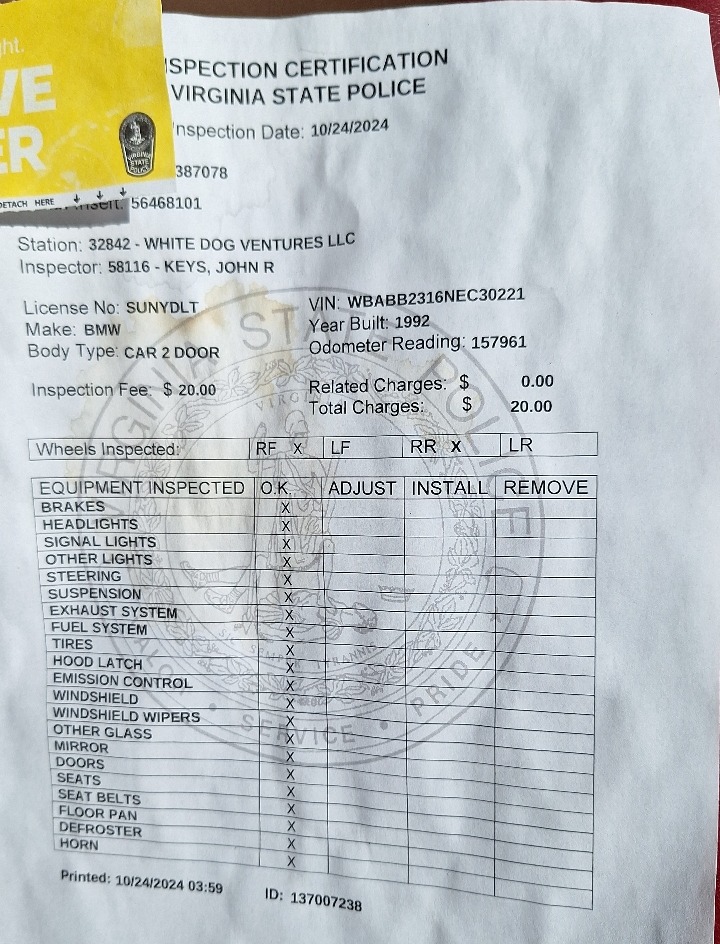 ht.
VE
ER
VIRGINIA
STATE
POLICE
DETACH HERE
SPECTION CERTIFICATION
VIRGINIA STATE POLICE
nspection Date: 10/24/2024
387078
nsert: 56468101
Station: 32842 - WHITE DOG VENTURES LLC
Inspector: 58116 - KEYS, JOHN R
License No: SUNYDLT VIN: WBABB2316NEC30221
Make: BMW Year Built: 1992
Body Type: CAR 2 DOOR Odometer Reading: 157961
Inspection Fee: $ 20.00 Related Charges: $ 0.00
Total Charges: $ 20.00
Wheels Inspected: RF X LF RR X LR
EQUIPMENT INSPECTED O.K. ADJUST INSTALL REMOVE
BRAKES X
HEADLIGHTS X
SIGNAL LIGHTS X
OTHER LIGHTS X
STEERING X
SUSPENSION X
EXHAUST SYSTEM X
FUEL SYSTEM X
TIRES X
HOOD LATCH X
EMISSION CONTROL X
WINDSHIELD X
WINDSHIELD WIPERS X
OTHER GLASS X
MIRROR X
DOORS X
SEATS X
SEAT BELTS X
FLOOR PAN X
DEFROSTER X
HORN X
Printed: 10/24/2024 03:59 ID: 137007238
VIRGINIA STATE POLICE
SERVICE • PRIDE